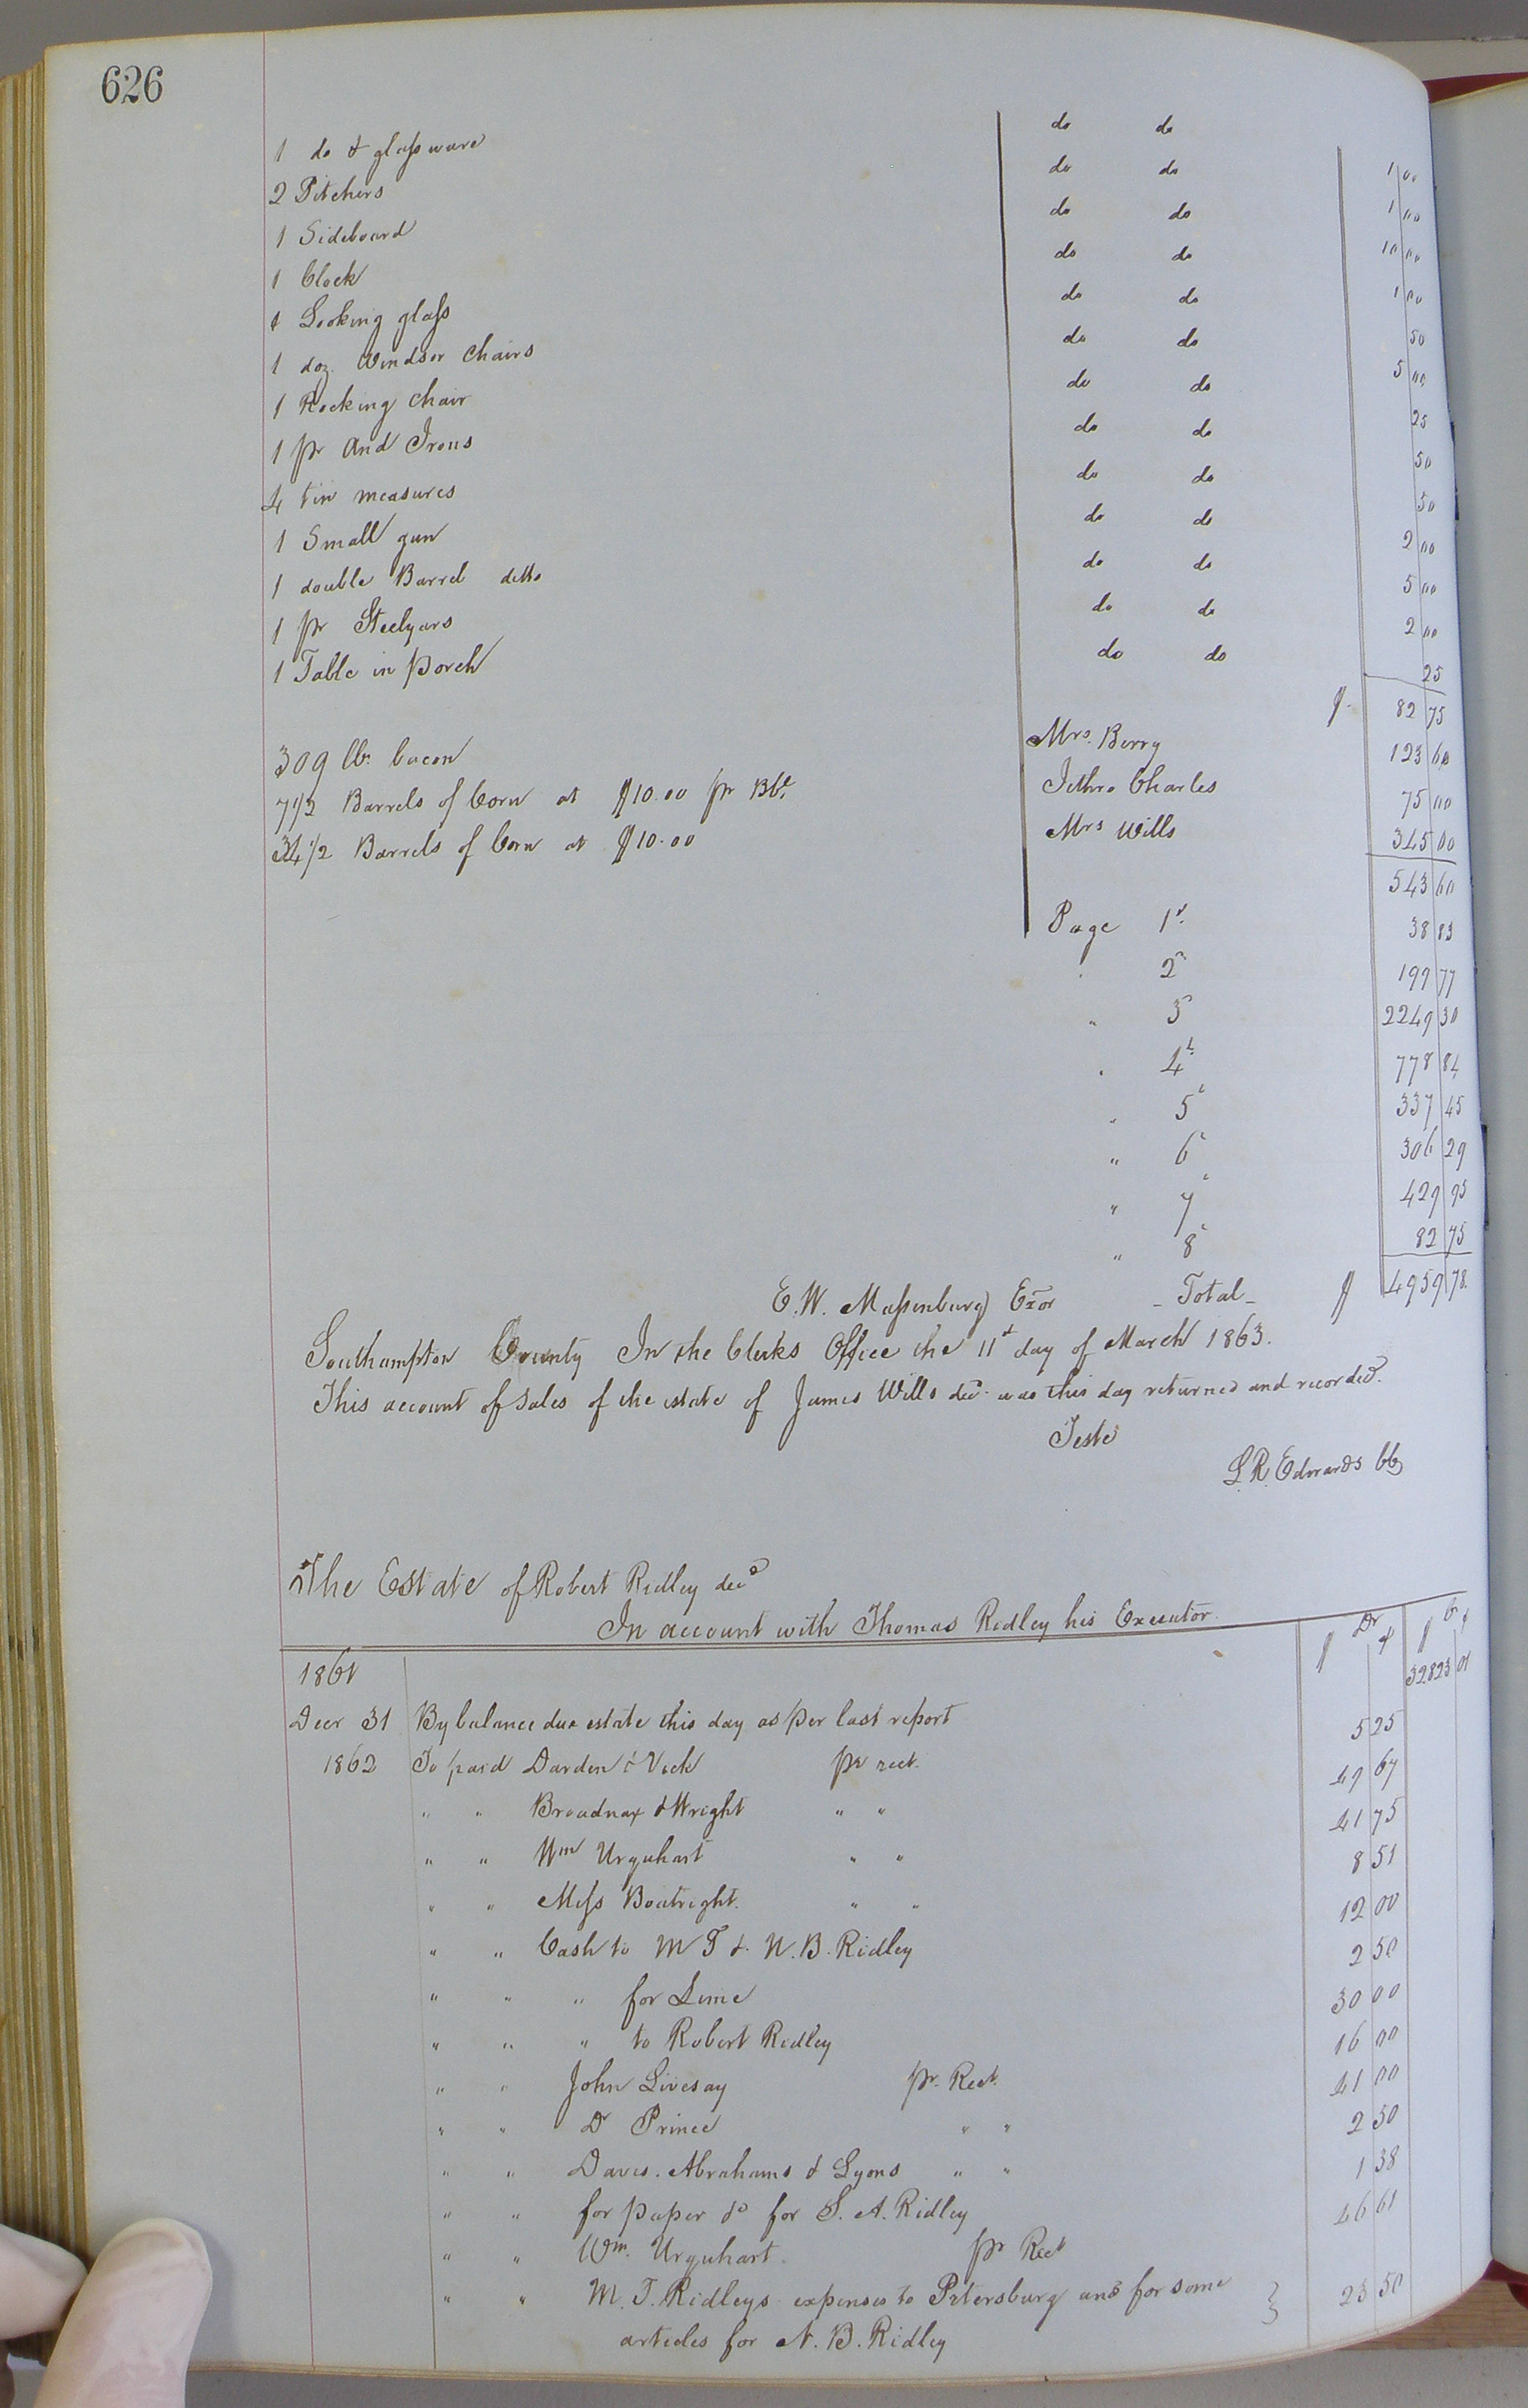 626
1 do & glass ware do do 1 00
2 Pitchers do do 1 00
1 Sideboard do do 10 00
1 Clock do do 1 00
1 Looking glass do do 50
1 doz. Windsor Chairs do do 5 00
1 Rocking Chair do do 25
1 pr And Irons do do 50
4 tin measures do do 50
1 Small gun do do 2 00
1 double Barrel ditto do do 5 00
1 pr Steelyars do do 2 00
1 Table in Porch do do 25
$ 82 75
309 lbs bacon Mrs. Berry 123 60
7 1/2 Barrels of Corn at $10.00 pr Bbl. Jethro Charles 75 00
34 1/2 Barrels of Corn at $10.00 Mrs Wills 345 00
543 60
Page 1st 38 83
" 2 199 77
" 3 2249 30
" 4th 778 84
" 5 337 45
" 6 306 29
" 7 429 95
" 8 82 75
E. W. Massenburg Exor - Total - $ 4959 78.
Southampton County In the Clerks Office the 11th day of March 1863.
This account of Sales of the estate of James Wills decd. was this day returned and recorded.
Teste
L. R. Edwards CC
The Estate of Robert Ridley decd
In account with Thomas Ridley his Executor. $ Dr ¢ $ Cr ¢
1861
Decr 31 By balance due estate this day as per last report 32823 01
1862 To paid Darden & Vick pr rect. 5 25
" " Broadnax & Wright " " 49 67
" " Wm Urquhart " " 41 75
" " Miss Boatright. " " 8 51
" " Cash to M T & N. B. Ridley 12 00
" " " for Lime 2 50
" " " to Robert Ridley 30 00
" " John Livesay pr. Rect. 16 00
" " Dr Prince " " 41 00
" " Davis. Abrahams & Lyons " " 2 50
" " for paper &c for S. A. Ridley 1 38
" " Wm. Urquhart pr Rect 46 61
" " M. T. Ridleys expenses to Petersburg and for some
articles for N. B. Ridley } 23 50